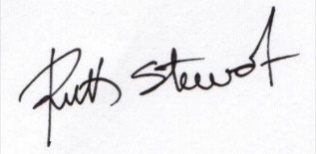 Ruth Stewart